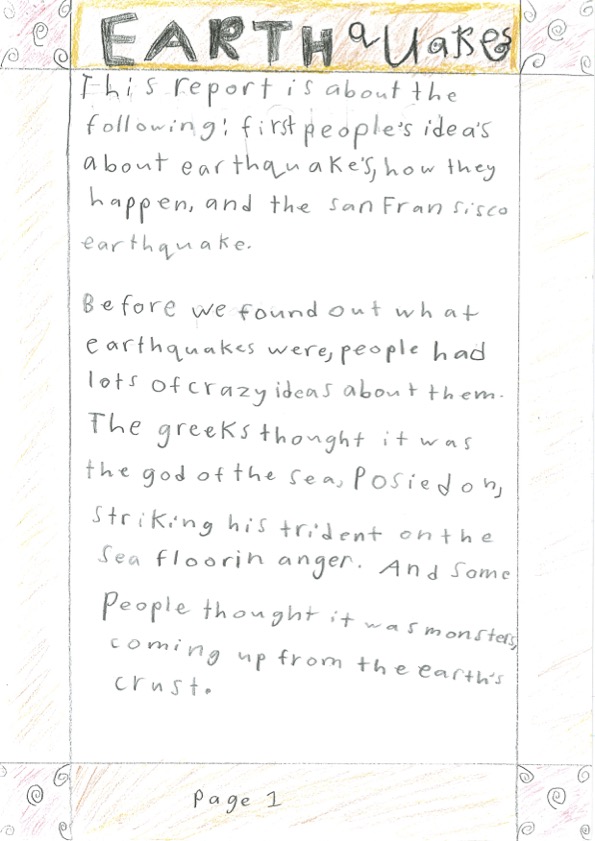 EARTHquakes
This report is about the
following: first people's idea's
about earthquake's, how they
happen, and the san Fran sisco
earthquake.
Before we found out what
earthquakes were, people had
lots of crazy ideas about them.
The greeks thought it was
the god of the sea, Posiedon,
striking his trident on the
sea floor in anger. And some
People thought it was monsters,
coming up from the earth's
crust.
Page 1